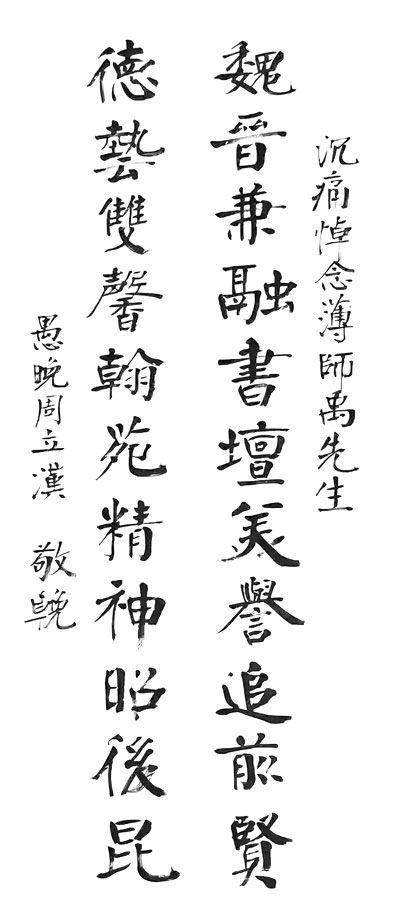 沉痛悼念薄師禹先生
魏晉兼融書壇美譽追前賢
德藝雙馨翰苑精神昭後昆
愚晚周立漢 敬輓